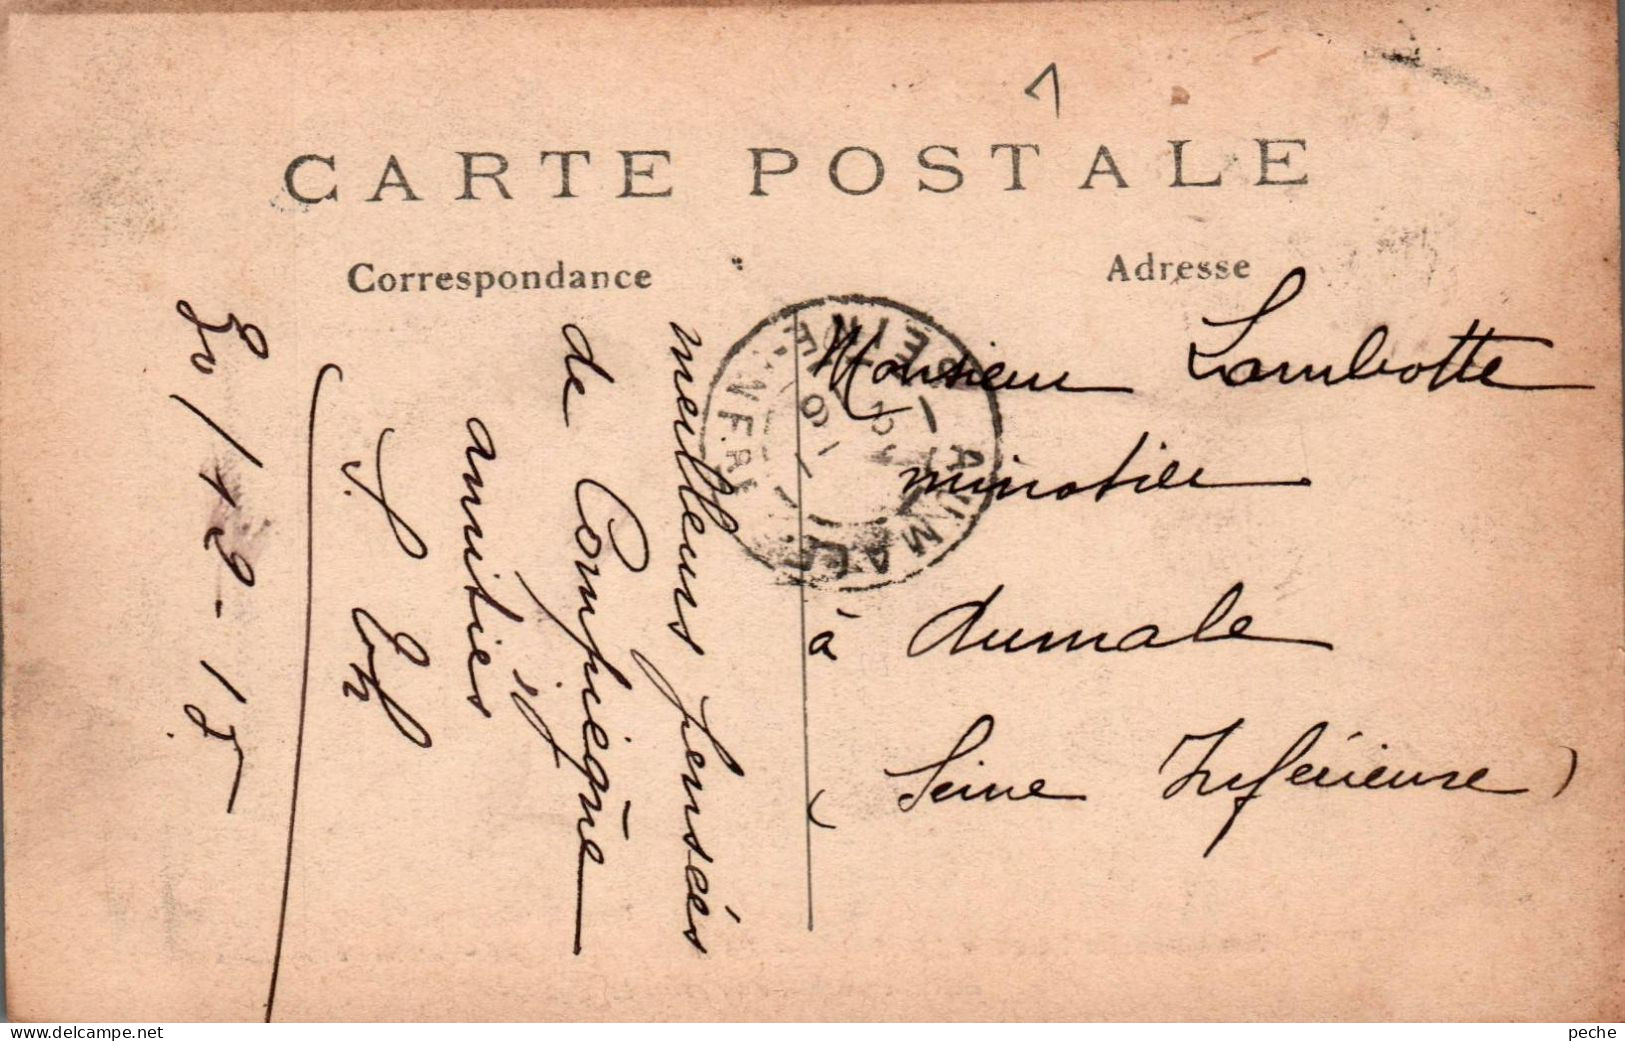 CARTE POSTALE
Correspondance
Adresse
meilleurs pensées
de Compiègne
amitiés
Monsieur Lambotte
minotier
à Aumale
(Seine Inférieure)
AUMALE
SEINE
INFRE
delcampe.net
peche